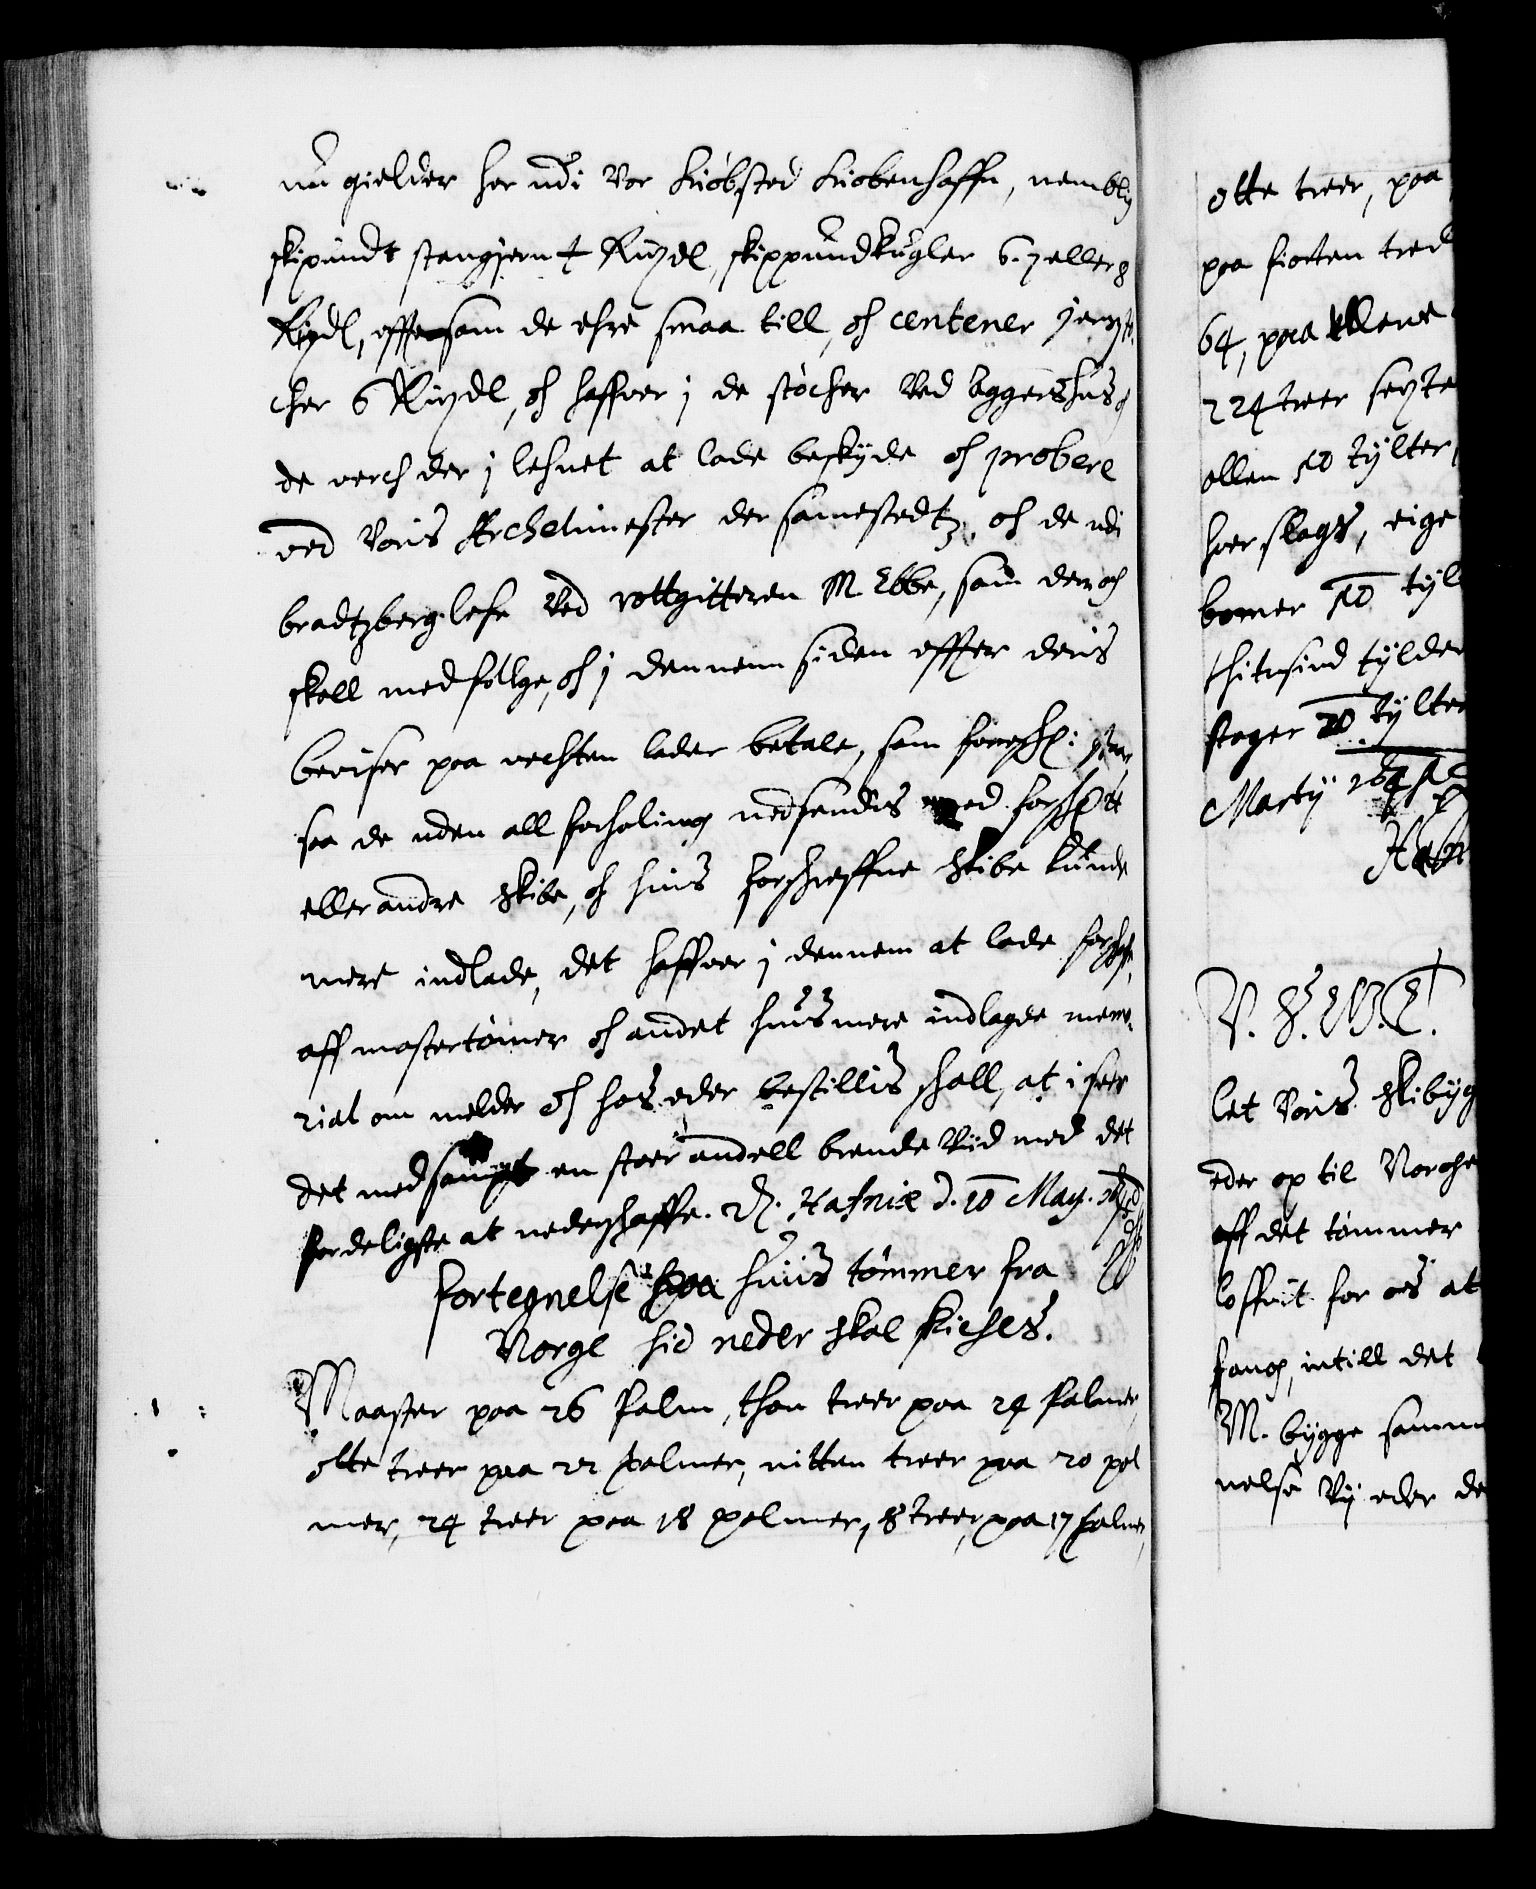 nu gielder her udi Vor kiøbsted kiøbenhaffn, nemblig
skipundt stangjern 4 Rigsdl, skippundkugler 6. 7 eller 8
Rigdl, effter som de ehre smaa till, oh centener
cher 6 Rigsdl, oh haffver i de støcher ved Aggershus
de verch der i lehnet at lade beskyde oh probere
ved Voris Archelimester der samestedtz, oh de udi
bradtzberg lehn ved rottgitteren M Ebbe, som den oh
skall medfølge, oh i dennem siden effter deris
beviser paa vechten lader betale, som
saa de uden all forhaling nedsendis med
eller andre skibe, oh huis forschreffne skibe kunde
mere indlade, det haffver i dennem at lade
aff mastetømer oh andet huis mere indlagde memo-
rial om melder oh hos eder bestillis skall, at i
det medsampt en stoer andell brende Vid med det
fordeligste at nedershaffe. Hafniæ d. 10 May.
fortegnelse paa huis tømmer fra
Norge hid neder skal skiches.
Maaster paa 26 Palm, thou treer paa 24 Palmer,
otte treer paa 22 palmer, nitten treer paa 20 pal
mer, 24 treer paa 18 palmer, 8 treer, paa 17 palmer,
otte treer, paa
paa fiorten tred
64, paa ellene
224 treer
allen 50 tylter
hver slags, eige
bomer 50 tyl
thitusind tylder
stager 20 tylter
Marty
V. S. G. T.
let Voris skibyg
eder op til Norche
aff det tømmer
loffuit for os at
fang, intill det
M. bygge samm
nelse Vy eder de